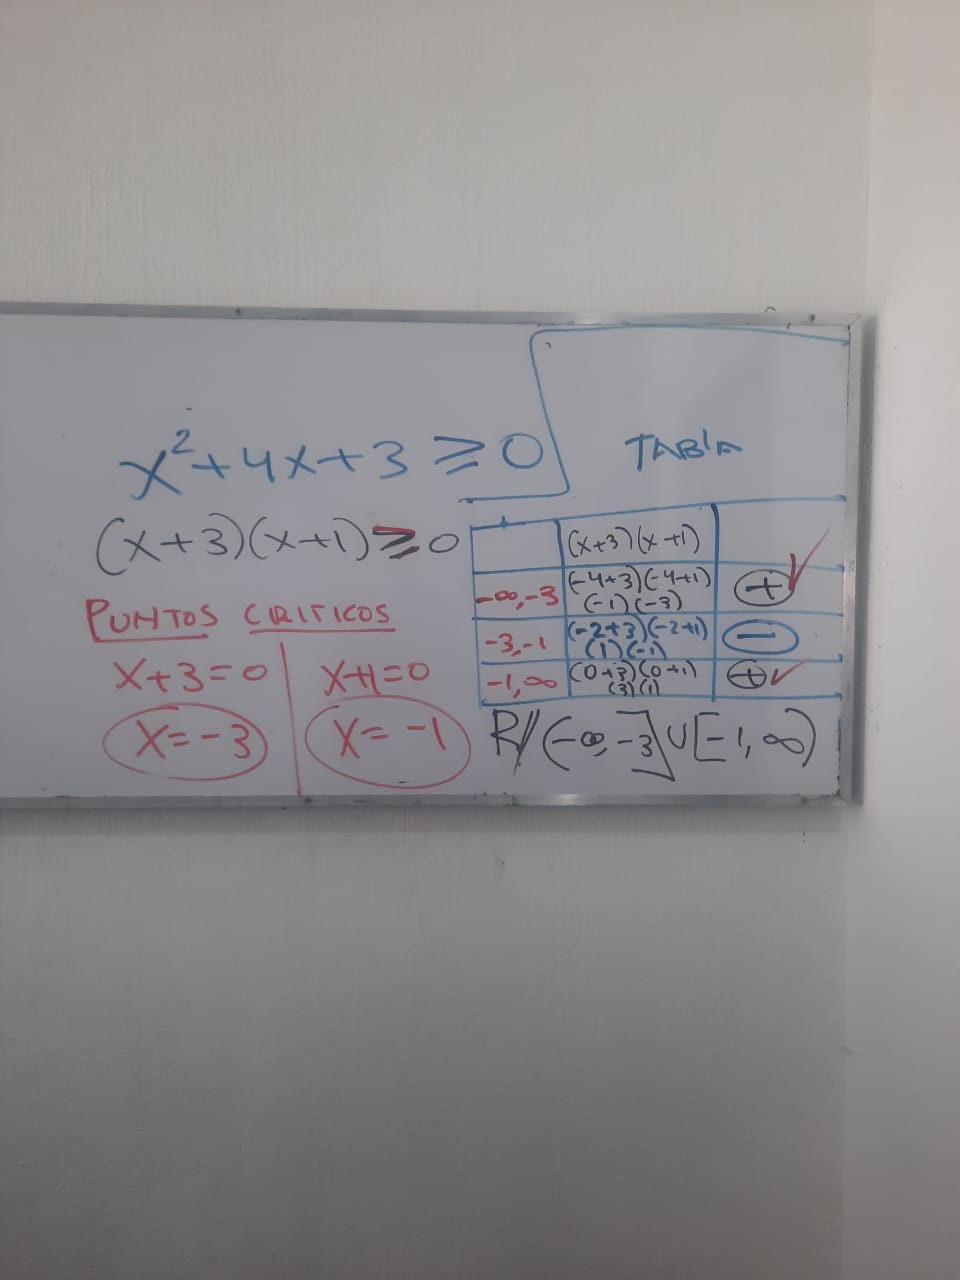 x²+4x+3 ≥ 0
(x+3)(x+1) ≥ 0
PUNTOS CIRITICOS
x+3=0
x=-3
x+1=0
x=-1
TABlA
(x+3)(x+1)
-∞,-3 (-4+3)(-4+1) + ✓
(-1)(-3)
-3,-1 (-2+3)(-2+1) −
(1)(-1)
-1,∞ (0+3)(0+1) + ✓
(3)(1)
R// (-∞,-3] ∪ [-1,∞)